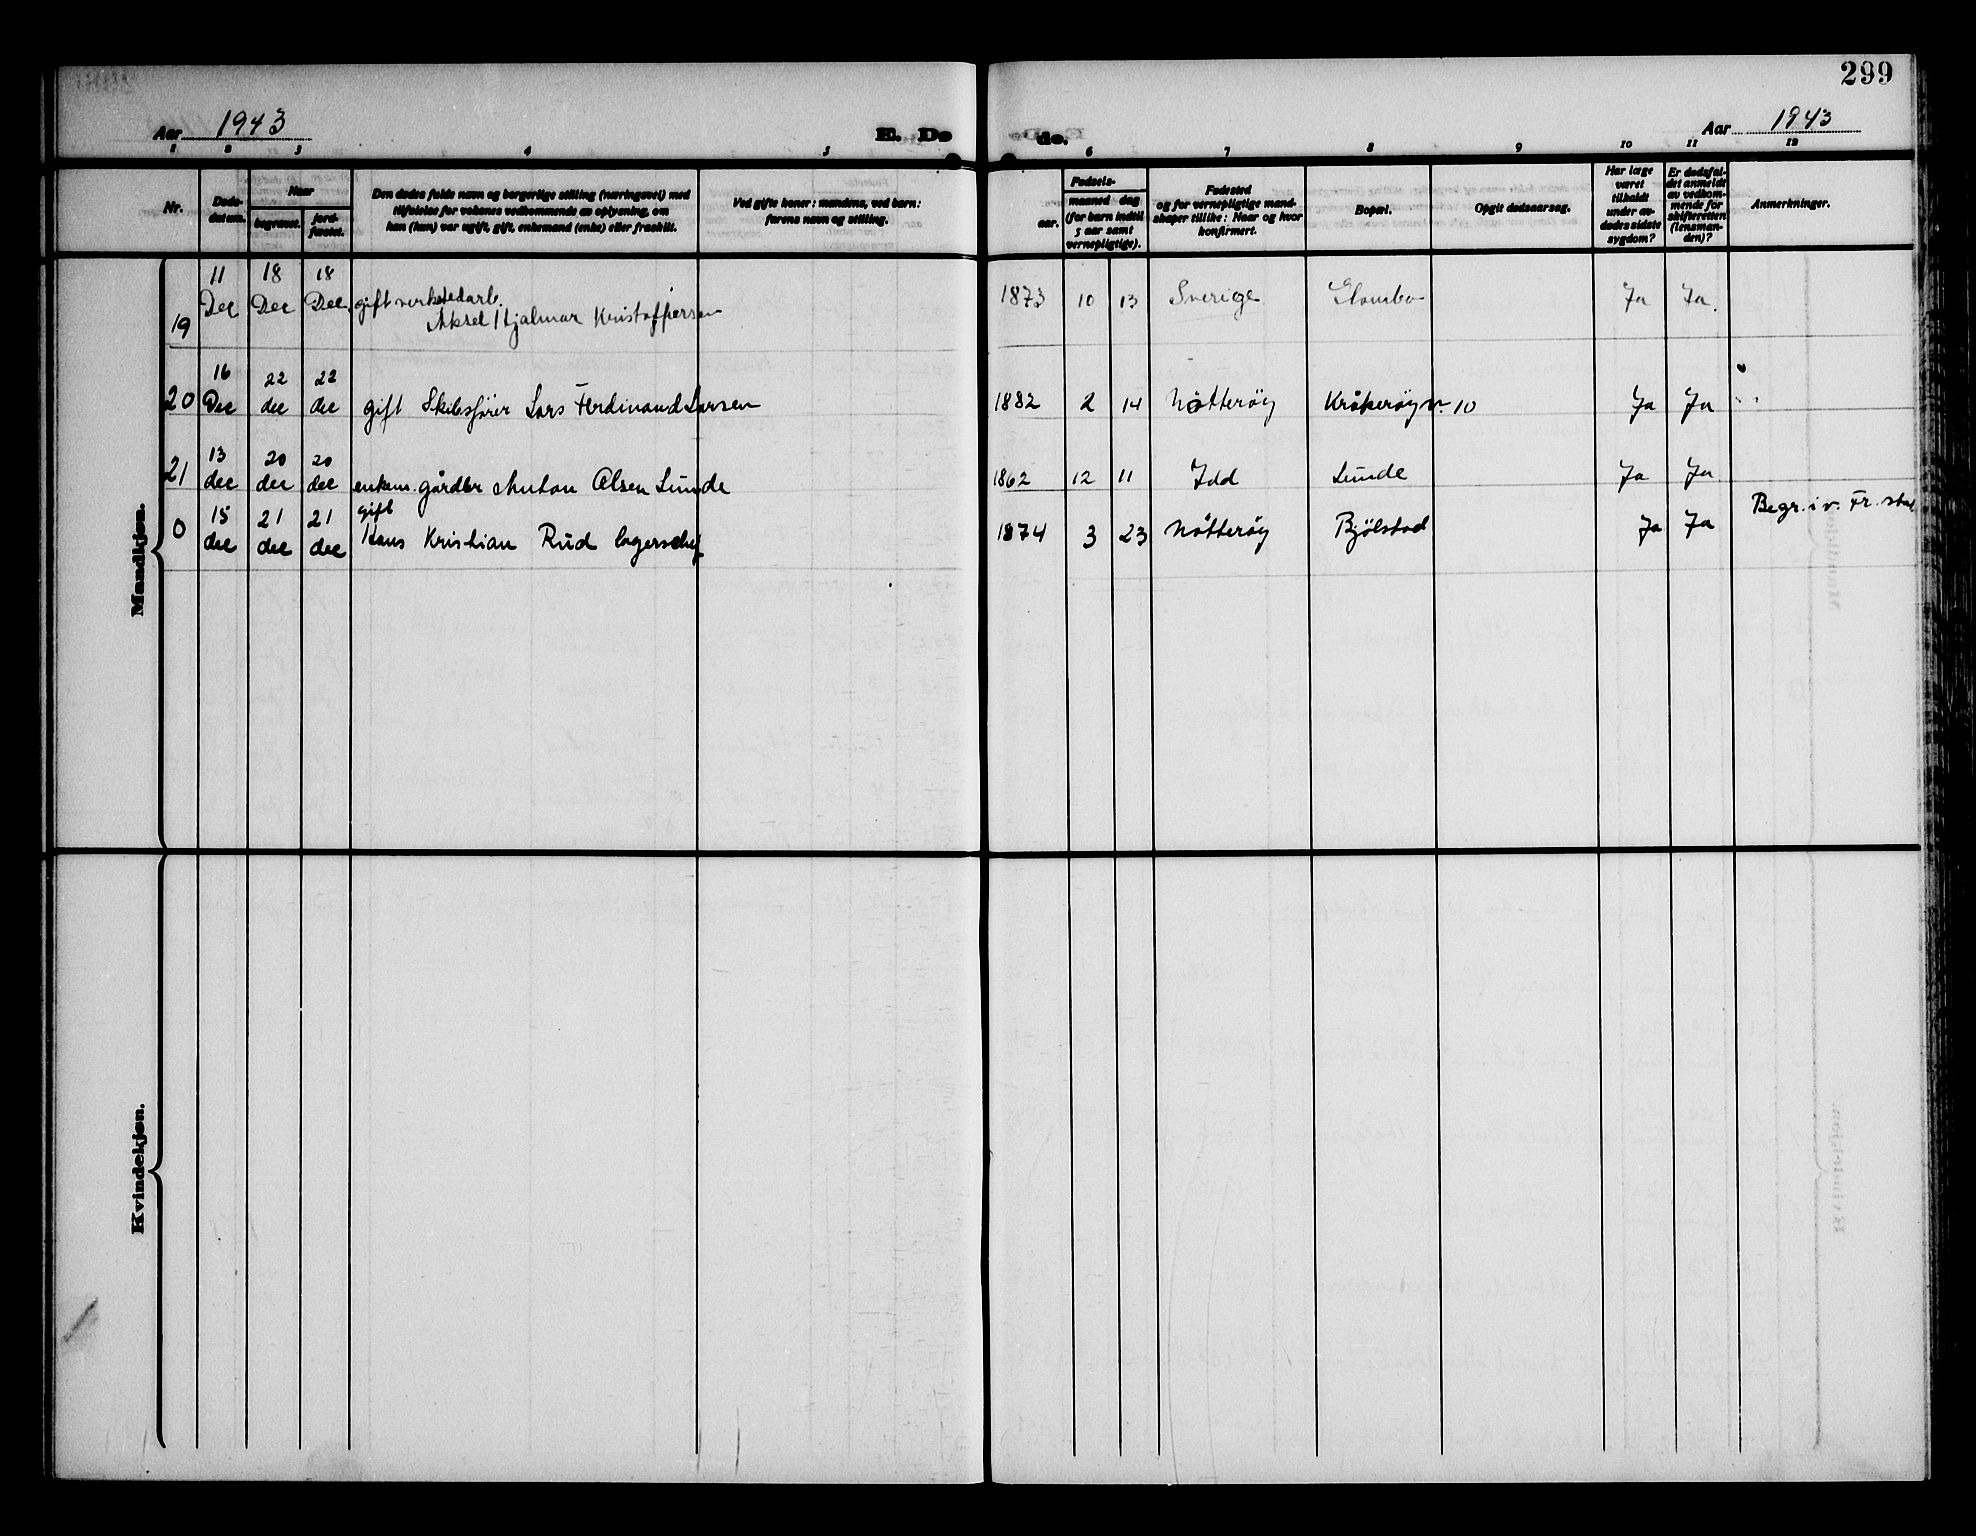 299
Aar 1943
E. Dø
de.
Aar 1943
1 2 3 4 5 6 7 8 9 10 11 12
Nr.
Døds-
datum.
Naar
begravet.
jord-
fæstet.
Den dødes fulde navn og borgerlige stilling (næringsvei) med
tilføielse for voksnes vedkommende av oplysning, om
han (hun) var ugift, gift, enkemand (enke) eller fraskilt.
Ved gifte koner: mandens, ved barn:
farens navn og stilling.
Fødsels-
aar.
maaned dag
(for barn indtil
5 aar samt
vernepligtige).
Fødested
og for vernepligtige mand-
skaper tillike: Naar og hvor
konfirmert.
Bopæl.
Opgit dødsaarsag.
Har læge
været
tilkaldt
under av-
dødes sidste
sygdom?
Er dødsfal-
det anmeldt
av vedkom-
mende for
skifteretten
(lensman-
den)?
Anmerkninger.
Mandkjøn.
19 11 Dec 18 Dec 18 Dec. gift verkstedarb. Aksel Hjalmar Kristoffersen 1873 10 13 Sverige Glombo Ja Ja.
20 16 Dec 22 dec 22 dec gift Skibsfører Lars Ferdinand Larsen 1882 2 14 Nøtterøy Kråkerøyv. 10 Ja Ja
21 13 dec 20 dec 20 dec enkem. gårdbr Anton Olsen Lunde 1862 12 11 Idd Lunde Ja Ja
0 15 dec 21 dec 21 dec gift Hans Kristian Rud lagerschef 1874 3 23 Nøtterøy Bjølstad Ja Ja Begr. i v. Fr.stad
Kvindekjøn.